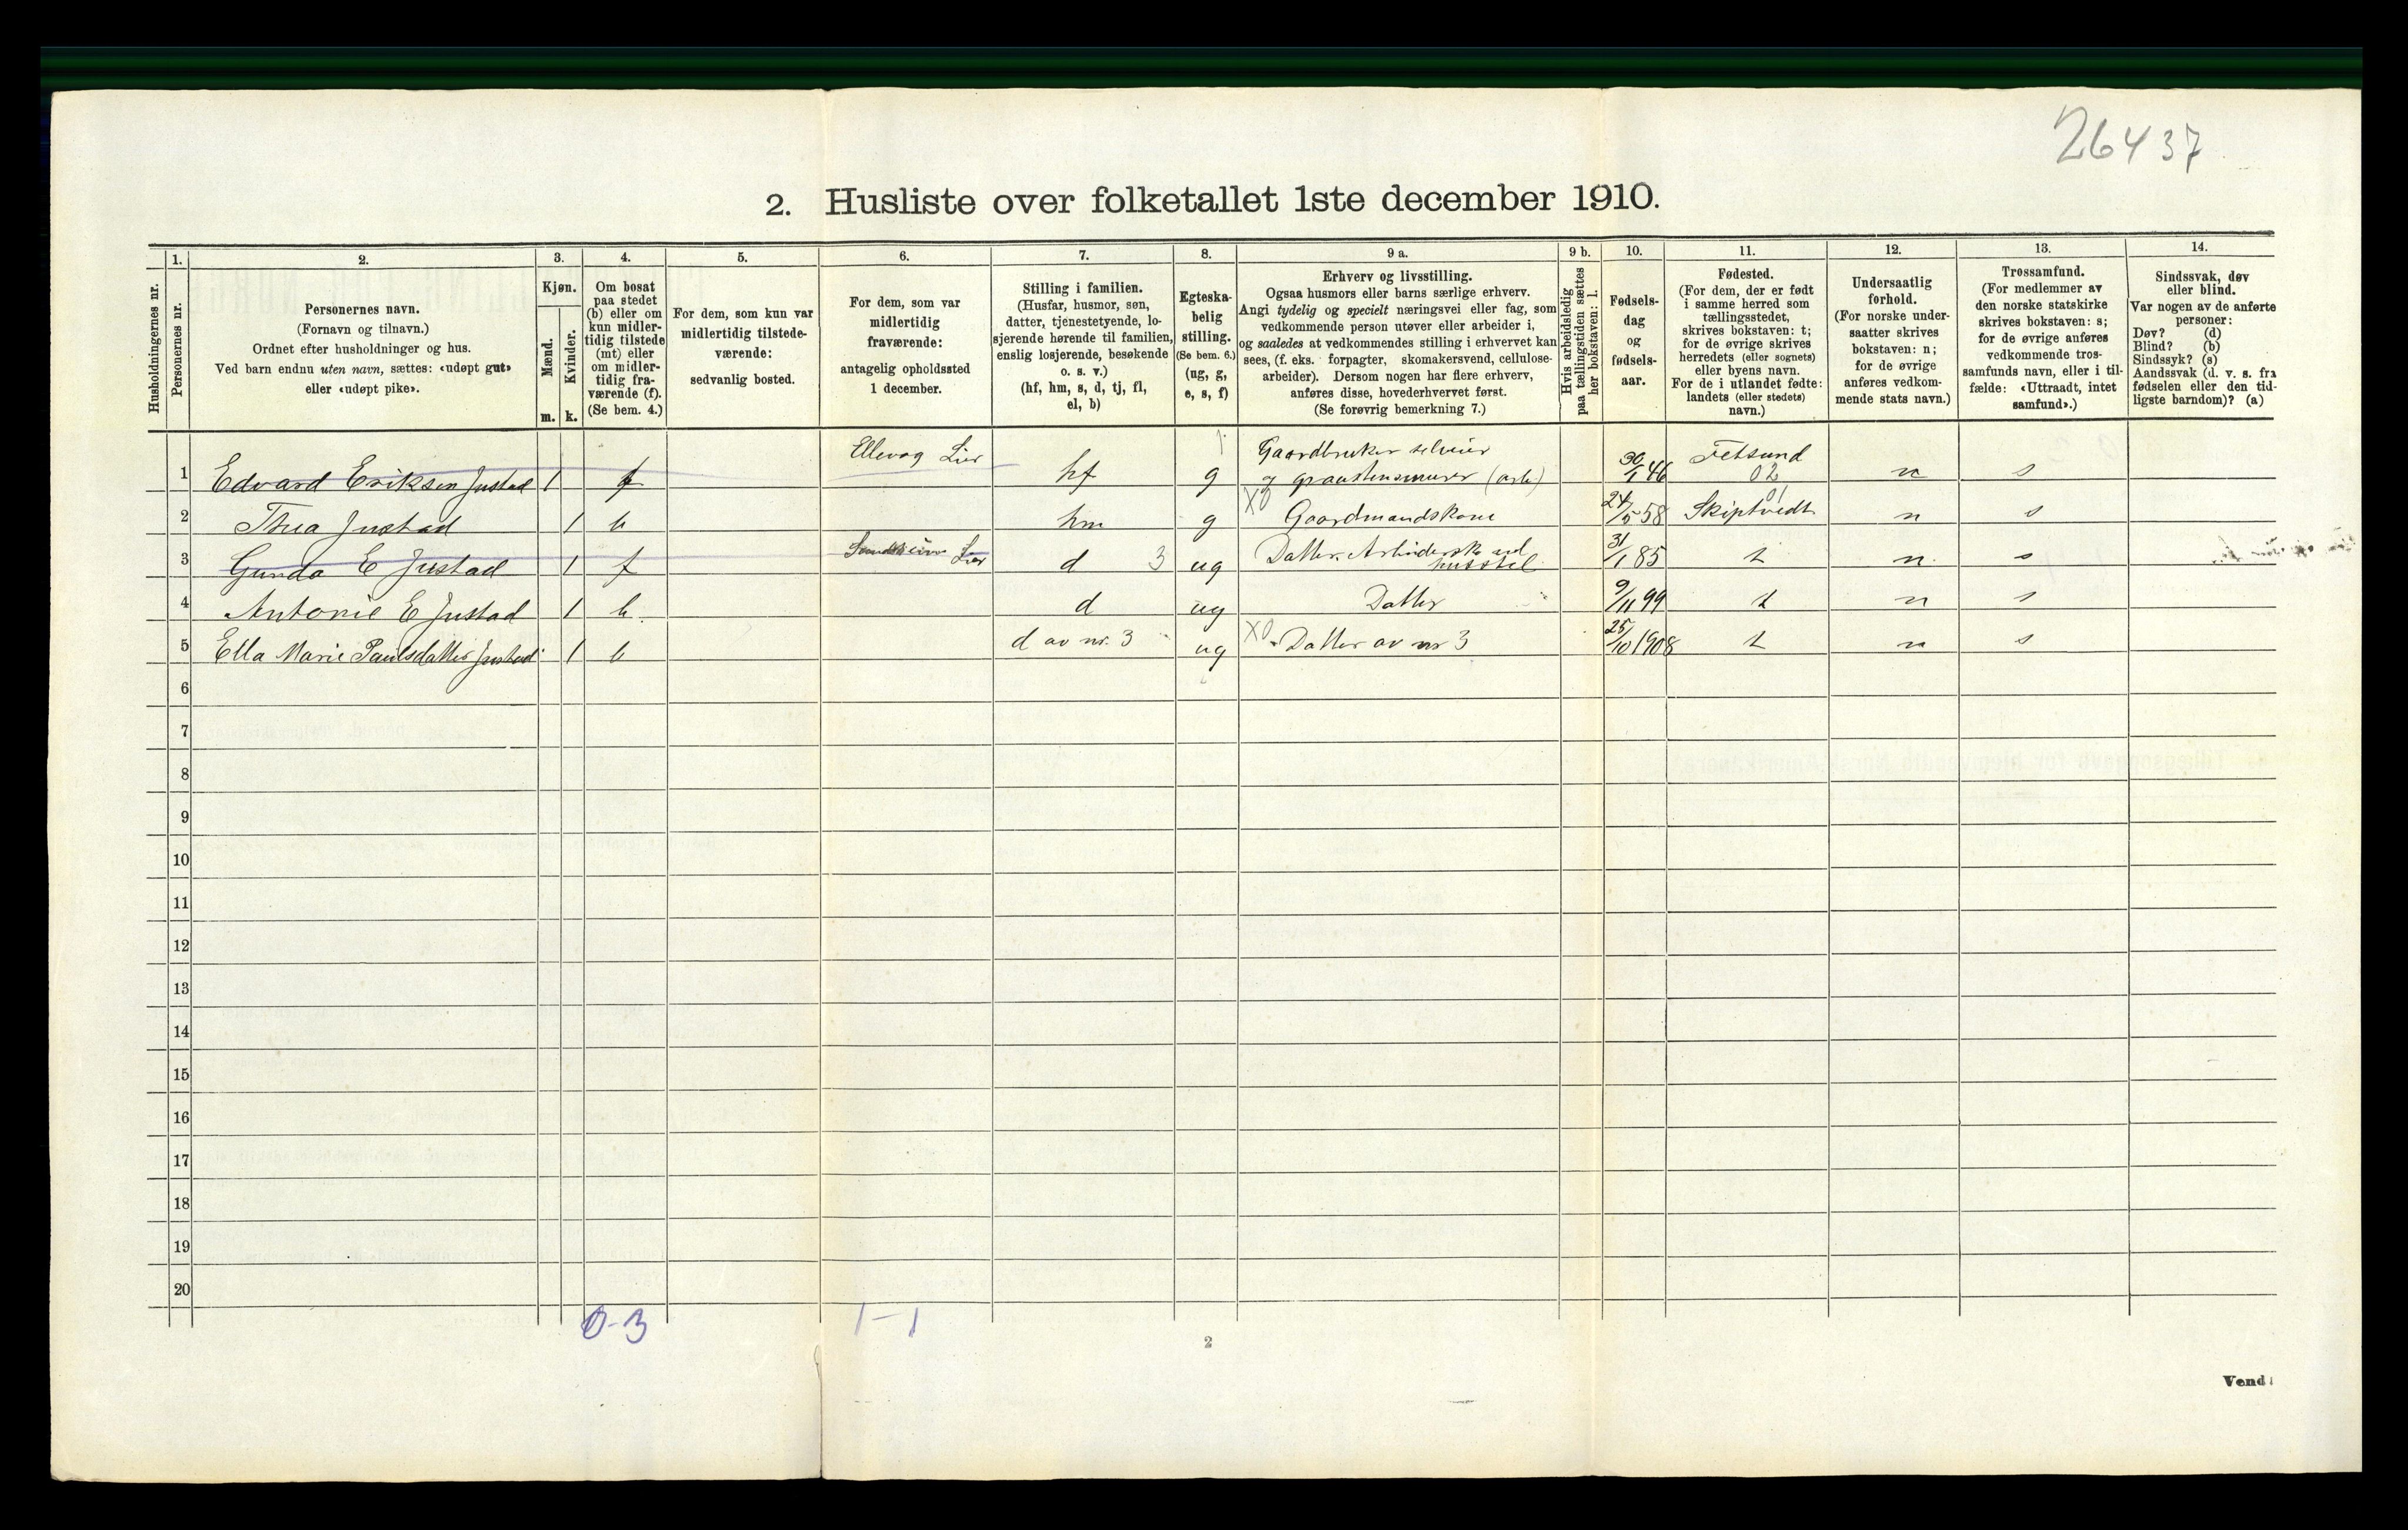 26437
2. Husliste over folketallet 1ste december 1910.
Husholdningernes nr.
1.
Personernes nr.
2.
Personernes navn.
(Fornavn og tilnavn.)
Ordnet efter husholdninger og hus.
Ved barn endnu uten navn, sættes: «udøpt gut»
eller «udøpt pike».
3.
Kjøn.
Mænd.
Kvinder.
m. k.
4.
Om bosat
paa stedet
(b) eller om
kun midler-
tidig tilstede
(mt) eller
om midler-
tidig fra-
værende (f).
(Se bem. 4.)
5.
For dem, som kun var
midlertidig tilstede-
værende:
sedvanlig bosted.
6.
For dem, som var
midlertidig
fraværende:
antagelig opholdssted
1 december.
7.
Stilling i familien.
(Husfar, husmor, søn,
datter, tjenestetyende, lo-
sjerende hørende til familien,
enslig losjerende, besøkende
o. s. v.)
(hf, hm, s, d, tj, fl,
el, b)
8.
Egteska-
belig
stilling.
(Se bem. 6.)
(ug, g,
e, s, f)
9 a.
Erhverv og livsstilling.
Ogsaa husmors eller barns særlige erhverv.
Angi tydelig og specielt næringsvei eller fag, som
vedkommende person utøver eller arbeider i,
og saaledes at vedkommendes stilling i erhvervet kan
sees, (f. eks. forpagter, skomakersvend, cellulose-
arbeider). Dersom nogen har flere erhverv,
anføres disse, hovederhvervet først.
(Se forøvrig bemerkning 7.)
9 b.
Hvis arbeidsledig
paa tællingstiden sættes
her bokstaven: l.
10.
Fødsels-
dag
og
fødsels-
aar.
11.
Fødested.
(For dem, der er født
i samme herred som
tællingsstedet,
skrives bokstaven: t;
for de øvrige skrives
herredets (eller sognets)
eller byens navn.
For de i utlandet fødte:
landets (eller stedets)
navn.)
12.
Undersaatlig
forhold.
(For norske under-
saatter skrives
bokstaven: n;
for de øvrige
anføres vedkom-
mende stats navn.)
13.
Trossamfund.
(For medlemmer av
den norske statskirke
skrives bokstaven: s;
for de øvrige anføres
vedkommende tros-
samfunds navn, eller i til-
fælde: «Uttraadt, intet
samfund».)
14.
Sindssvak, døv
eller blind.
Var nogen av de anførte
personer:
Døv? (d)
Blind? (b)
Sindssyk? (s)
Aandssvak (d. v. s. fra
fødselen eller den tid-
ligste barndom)? (a)
1 Edvard Eriksen Justad 1 f Ellevog Lier hf g Gaardbruker selveier og graastensmurer (arb) 30/1 46 Fetsund 02 n s
2 Thea Justad 1 b hm g X0 Gaardmandskone 24/5 58 Skiptvedt 01 n s
3 Gunda E Justad 1 f Lier d 3 ug Datter. Arbeiderske ved husstel 31/1 85 t n s
4 Antonie E Justad 1 b d ug Datter 9/11 99 t n s
5 Ella Marie Paulsdatter Justad 1 b d av nr. 3 ug X0 Datter av nr 3 25/10 1908 t n s
6
7
8
9
10
11
12
13
14
15
16
17
18
19
20
0-3
1-1
2
Vend